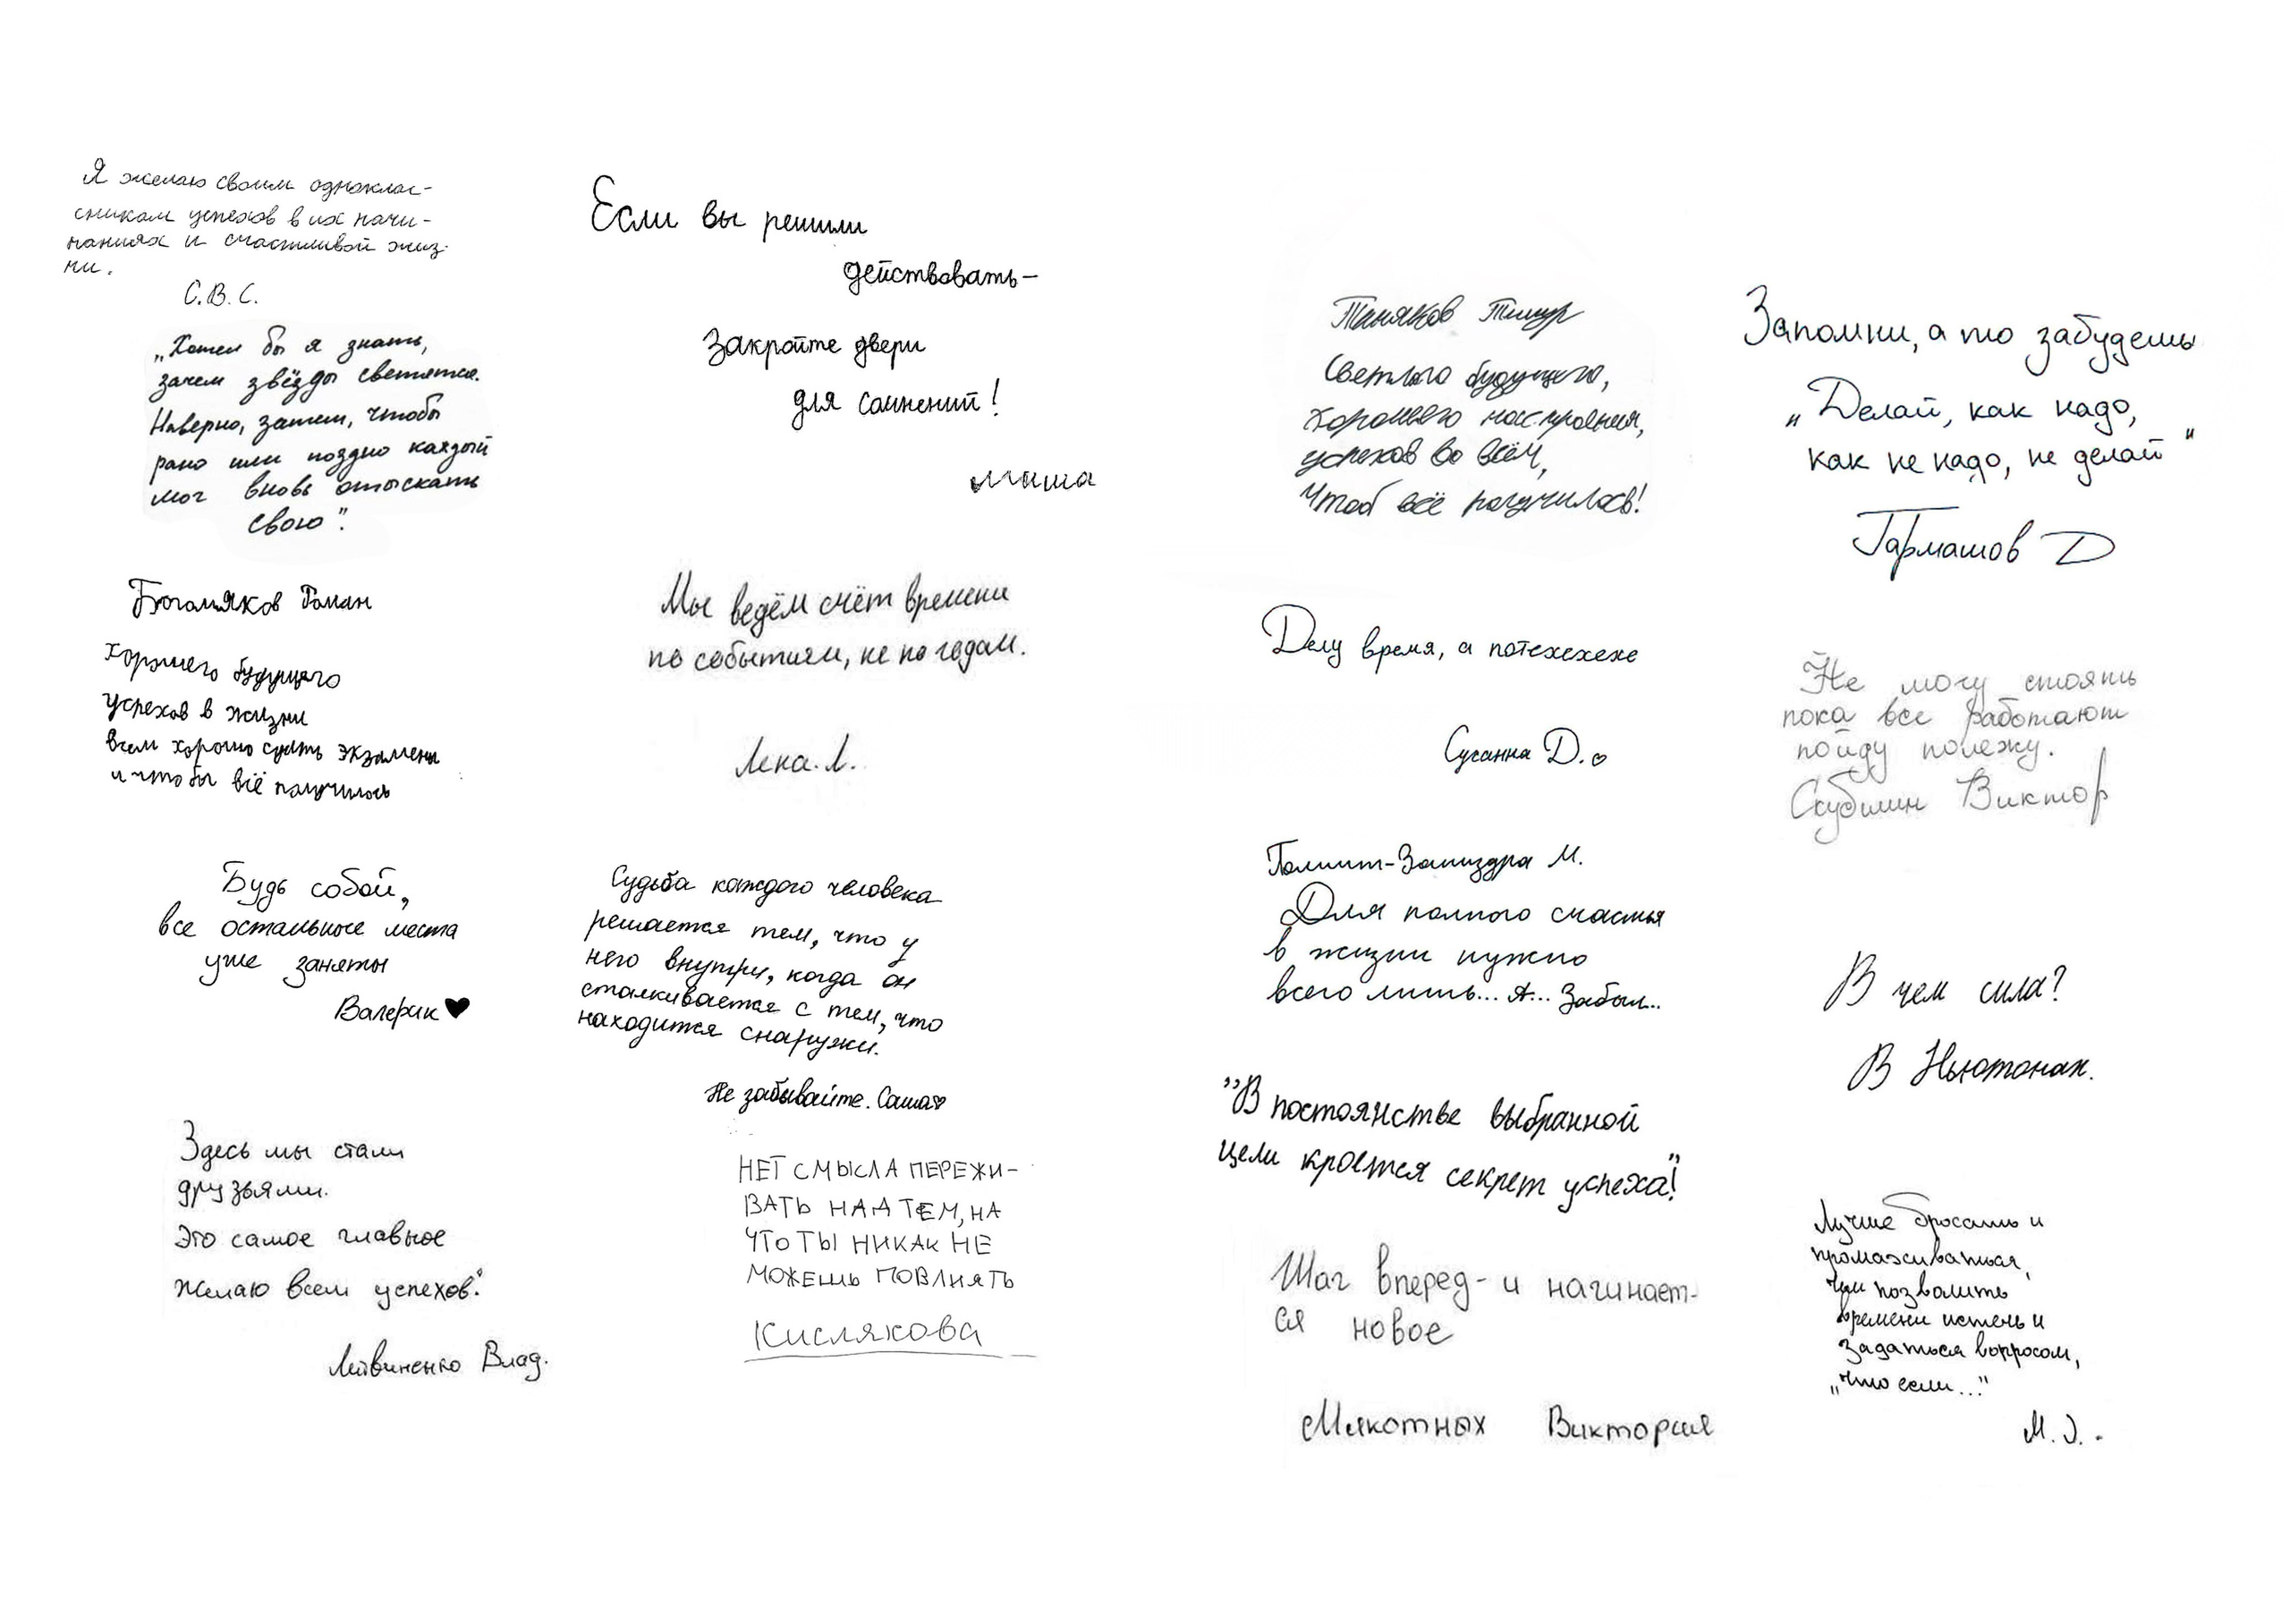 Я желаю своим однаклас-
сникам успехов в их начи-
наниях и счастливой жиз-
ни.
С.В.С.
„Хотел бы я знать,
зачем звёзды светятся.
Наверно, затем, чтобы
рано или поздно каждый
мог вновь отыскать
свою".
Роман
Хорошего будущего
Успехов в жизни
всем хорошо сдать экзамены
и чтобы всё получилось
Будь собой,
все остальные места
уже заняты
Валерик
Здесь мы стали
друзьями.
Это самое главное
Желаю всем успехов.
Литвиненко Влад.
Если вы решили
действовать-
Закройте двери
для сомнений!
Миша
Мы ведём счёт времени
по событиям, не по годам.
Лена.Л.
Судьба каждого человека
решается тем, что у
него внутри, когда он
сталкивается с тем, что
находится снаружи.
Не забывайте. Саша
НЕТ СМЫСЛА ПЕРЕЖИ-
ВАТЬ НАД ТЕМ, НА
ЧТО ТЫ НИКАК НЕ
МОЖЕШЬ ПОВЛИЯТЬ
Кислякова
Тимур
Светлого будущего,
хорошего настроения,
успехов во всём,
Чтоб всё получилось!
Делу время, а потехехехе
Сусанна Д.
М.
Для полного счастья
в жизни нужно
всего лишь... А... Забыл..
"В постоянстве выбранной
цели кроется секрет успеха"!
Шаг вперед - и начинает-
ся новое
Мякотных Виктория
Запомни, а то забудешь
„Делай, как надо,
как не надо, не делай"
Гармашов Д
Не могу стоять
пока все работают
пойду полежу.
Виктор
В чем сила?
В Ньютонах.
Лучше бросать и
промахиваться,
чем позволить
времени истечь и
задаться вопросом,
„что если..."